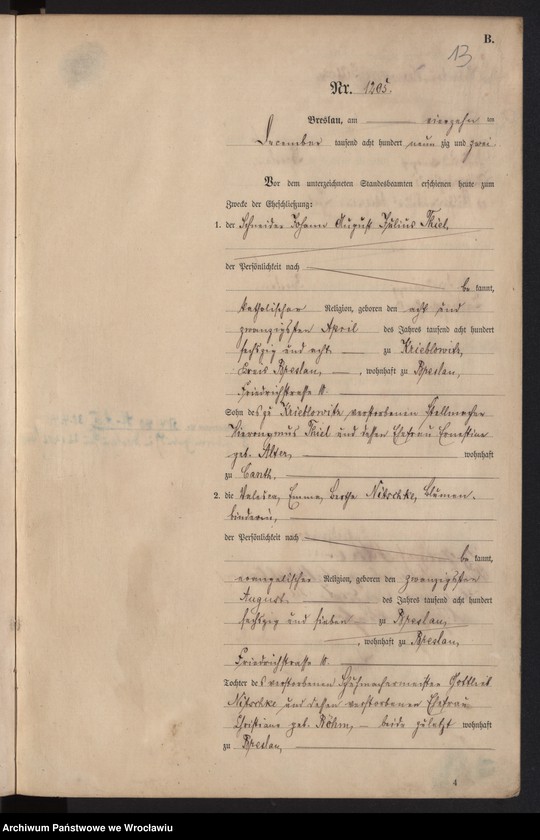 B.
13
Nr. 1205.
Breslau, am vierzehn ten
December tausend acht hundert neun zig und zwei.
Vor dem unterzeichneten Standesbeamten erschienen heute zum
Zwecke der Eheschließung:
1. der Schneider Johann August Julius Thiel,
der Persönlichkeit nach
be kannt,
katholischer Religion, geboren den acht und
zwanzigsten April des Jahres tausend acht hundert
sechszig und acht zu Krieblowitz,
Kreis Breslau, , wohnhaft zu Breslau,
Friedrichstrasse
Sohn des zu Krieblowitz verstorbenen Stellmacher
Hieronymus Thiel und dessen Ehefrau Ernestine
geb. Alter, wohnhaft
zu Canth.
2. die Valesca, Emma, Bertha Nitschke, Blumen-
binderin,
der Persönlichkeit nach
be kannt,
evangelischer Religion, geboren den zwanzigsten
August des Jahres tausend acht hundert
sechszig und sieben zu Breslau,
, wohnhaft zu Breslau,
Friedrichstrasse
Tochter des verstorbenen Schuhmachermeister Gottlieb
Nitschke und dessen verstorbenen Ehefrau
Christiane geb. Böhm, beide zuletzt wohnhaft
zu Breslau,
4
Archiwum Państwowe we Wrocławiu